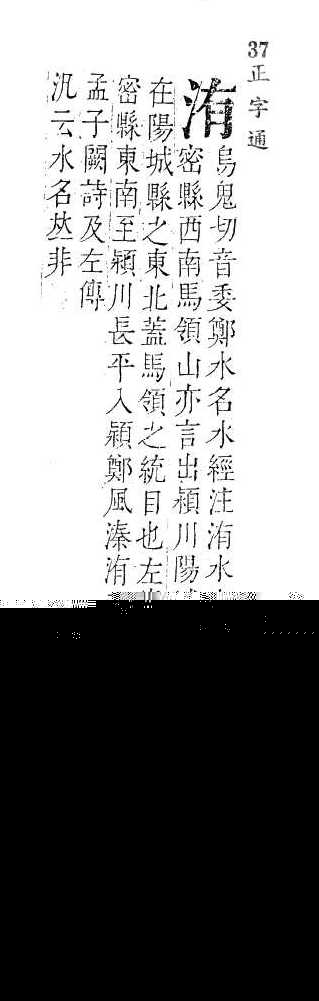 37 正字通
洧
烏鬼切音委鄭水名水經注洧水
密縣西南馬領山亦言出潁川陽
在陽城縣之東北蓋馬領之統目也左
密縣東南至潁川長平入潁鄭風溱洧
孟子闕詩及左傳
汎云水名𠀤非